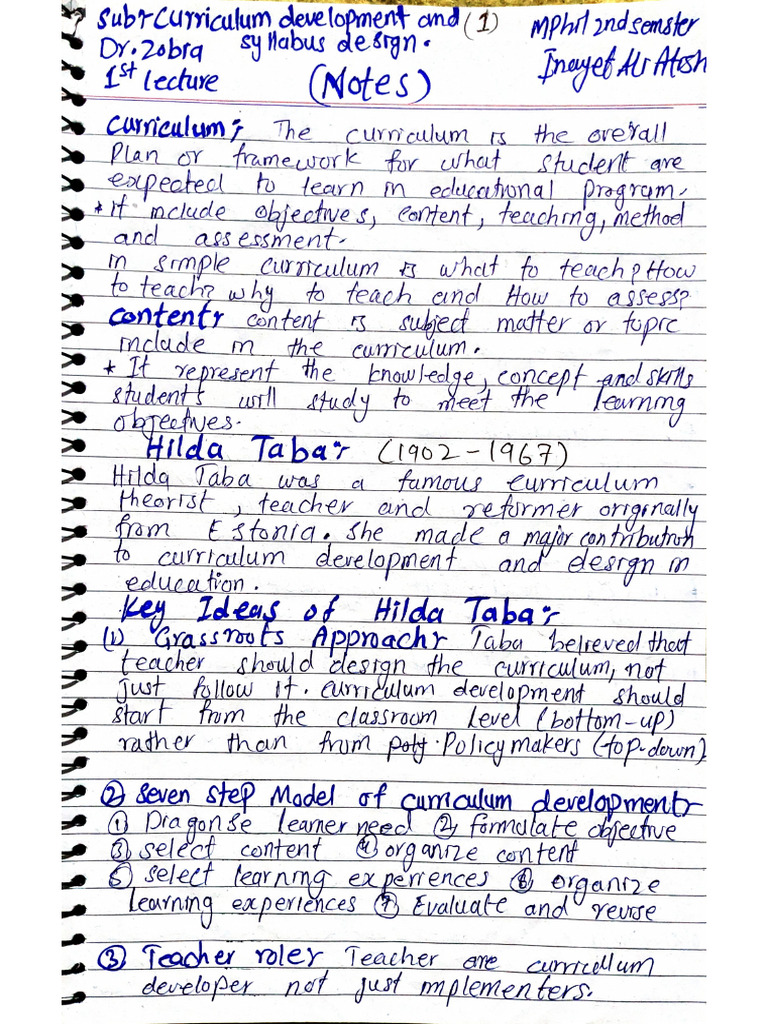 Sub:- Curriculum development and (1) MPhil 2nd Semster
Dr. Zobia syllabus design. Inayet Ali Atesh
1st lecture (Notes)
Curriculum:- The curriculum is the overall
Plan or framework for what student are
expected to learn in educational program.
* it include objectives, content, teaching, method
and assessment.
in simple curriculum is what to teach? How
to teach? why to teach and How to assess?
Content:- content is subject matter or topic
include in the curriculum.
* It represent the knowledge, concept and skills
students will study to meet the learning
objectives.
Hilda Taba:- (1902-1967)
Hilda Taba was a famous curriculum
theorist, teacher and reformer originally
from Estonia. She made a major contribution
to curriculum development and design in
education.
Key Ideas of Hilda Taba:-
(1) Grassroots Approach:- Taba believed that
teacher should design the curriculum, not
just follow it. curriculum development should
start from the classroom level (bottom-up)
rather than from Policymakers (top-down)
② Seven step Model of curriculum development:-
① Diagonse learner need ② formulate objective
③ select content ④ organize content
⑤ select learning experiences ⑥ organize
learning experiences ⑦ Evaluate and revise
③ Teacher role:- Teacher are curriculum
developer not just implementers.